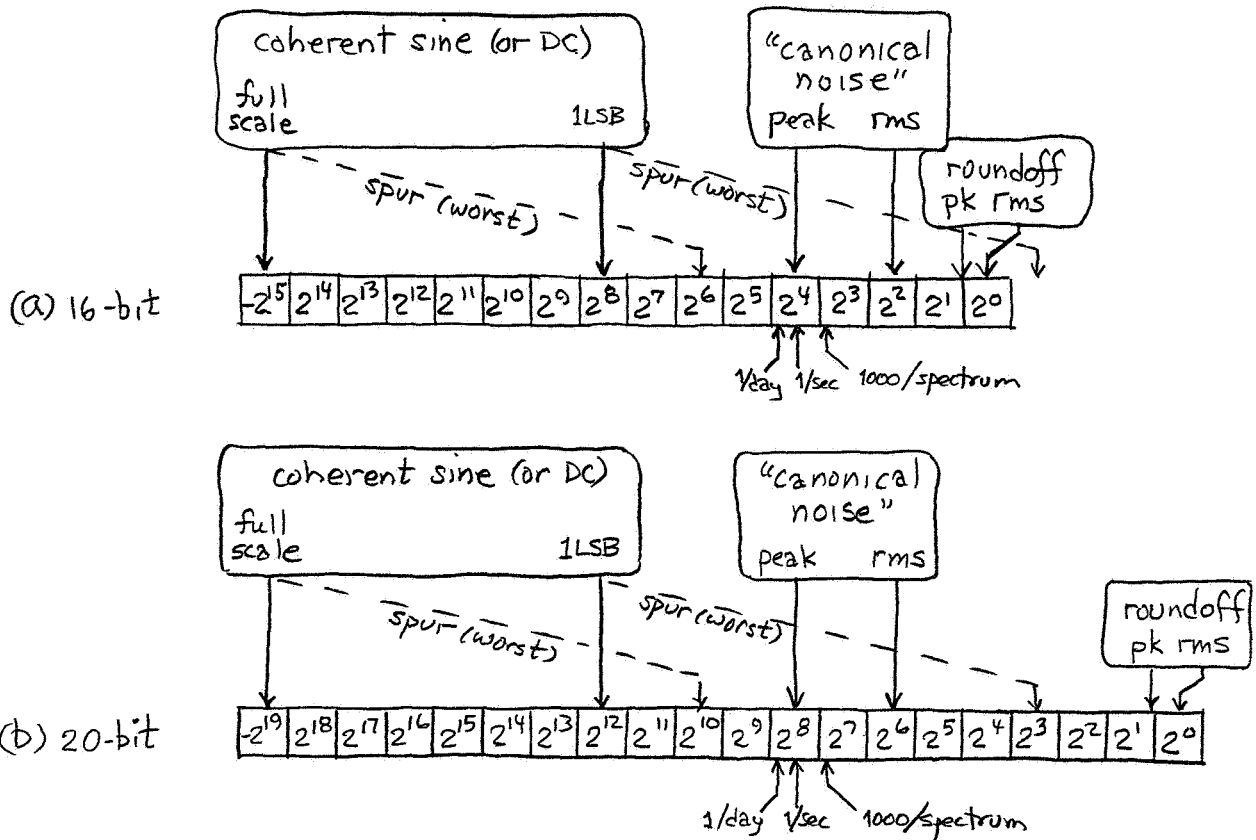 coherent sine (or DC)
full
scale
1LSB
"canonical
noise"
peak rms
roundoff
pk rms
spur (worst)
spur (worst)
(a) 16-bit
-2¹⁵ 2¹⁴ 2¹³ 2¹² 2¹¹ 2¹⁰ 2⁹ 2⁸ 2⁷ 2⁶ 2⁵ 2⁴ 2³ 2² 2¹ 2⁰
1/day 1/sec 1000/spectrum
coherent sine (or DC)
full
scale
1LSB
"canonical
noise"
peak rms
roundoff
pk rms
spur (worst)
spur (worst)
(b) 20-bit
-2¹⁹ 2¹⁸ 2¹⁷ 2¹⁶ 2¹⁵ 2¹⁴ 2¹³ 2¹² 2¹¹ 2¹⁰ 2⁹ 2⁸ 2⁷ 2⁶ 2⁵ 2⁴ 2³ 2² 2¹ 2⁰
1/day 1/sec 1000/spectrum